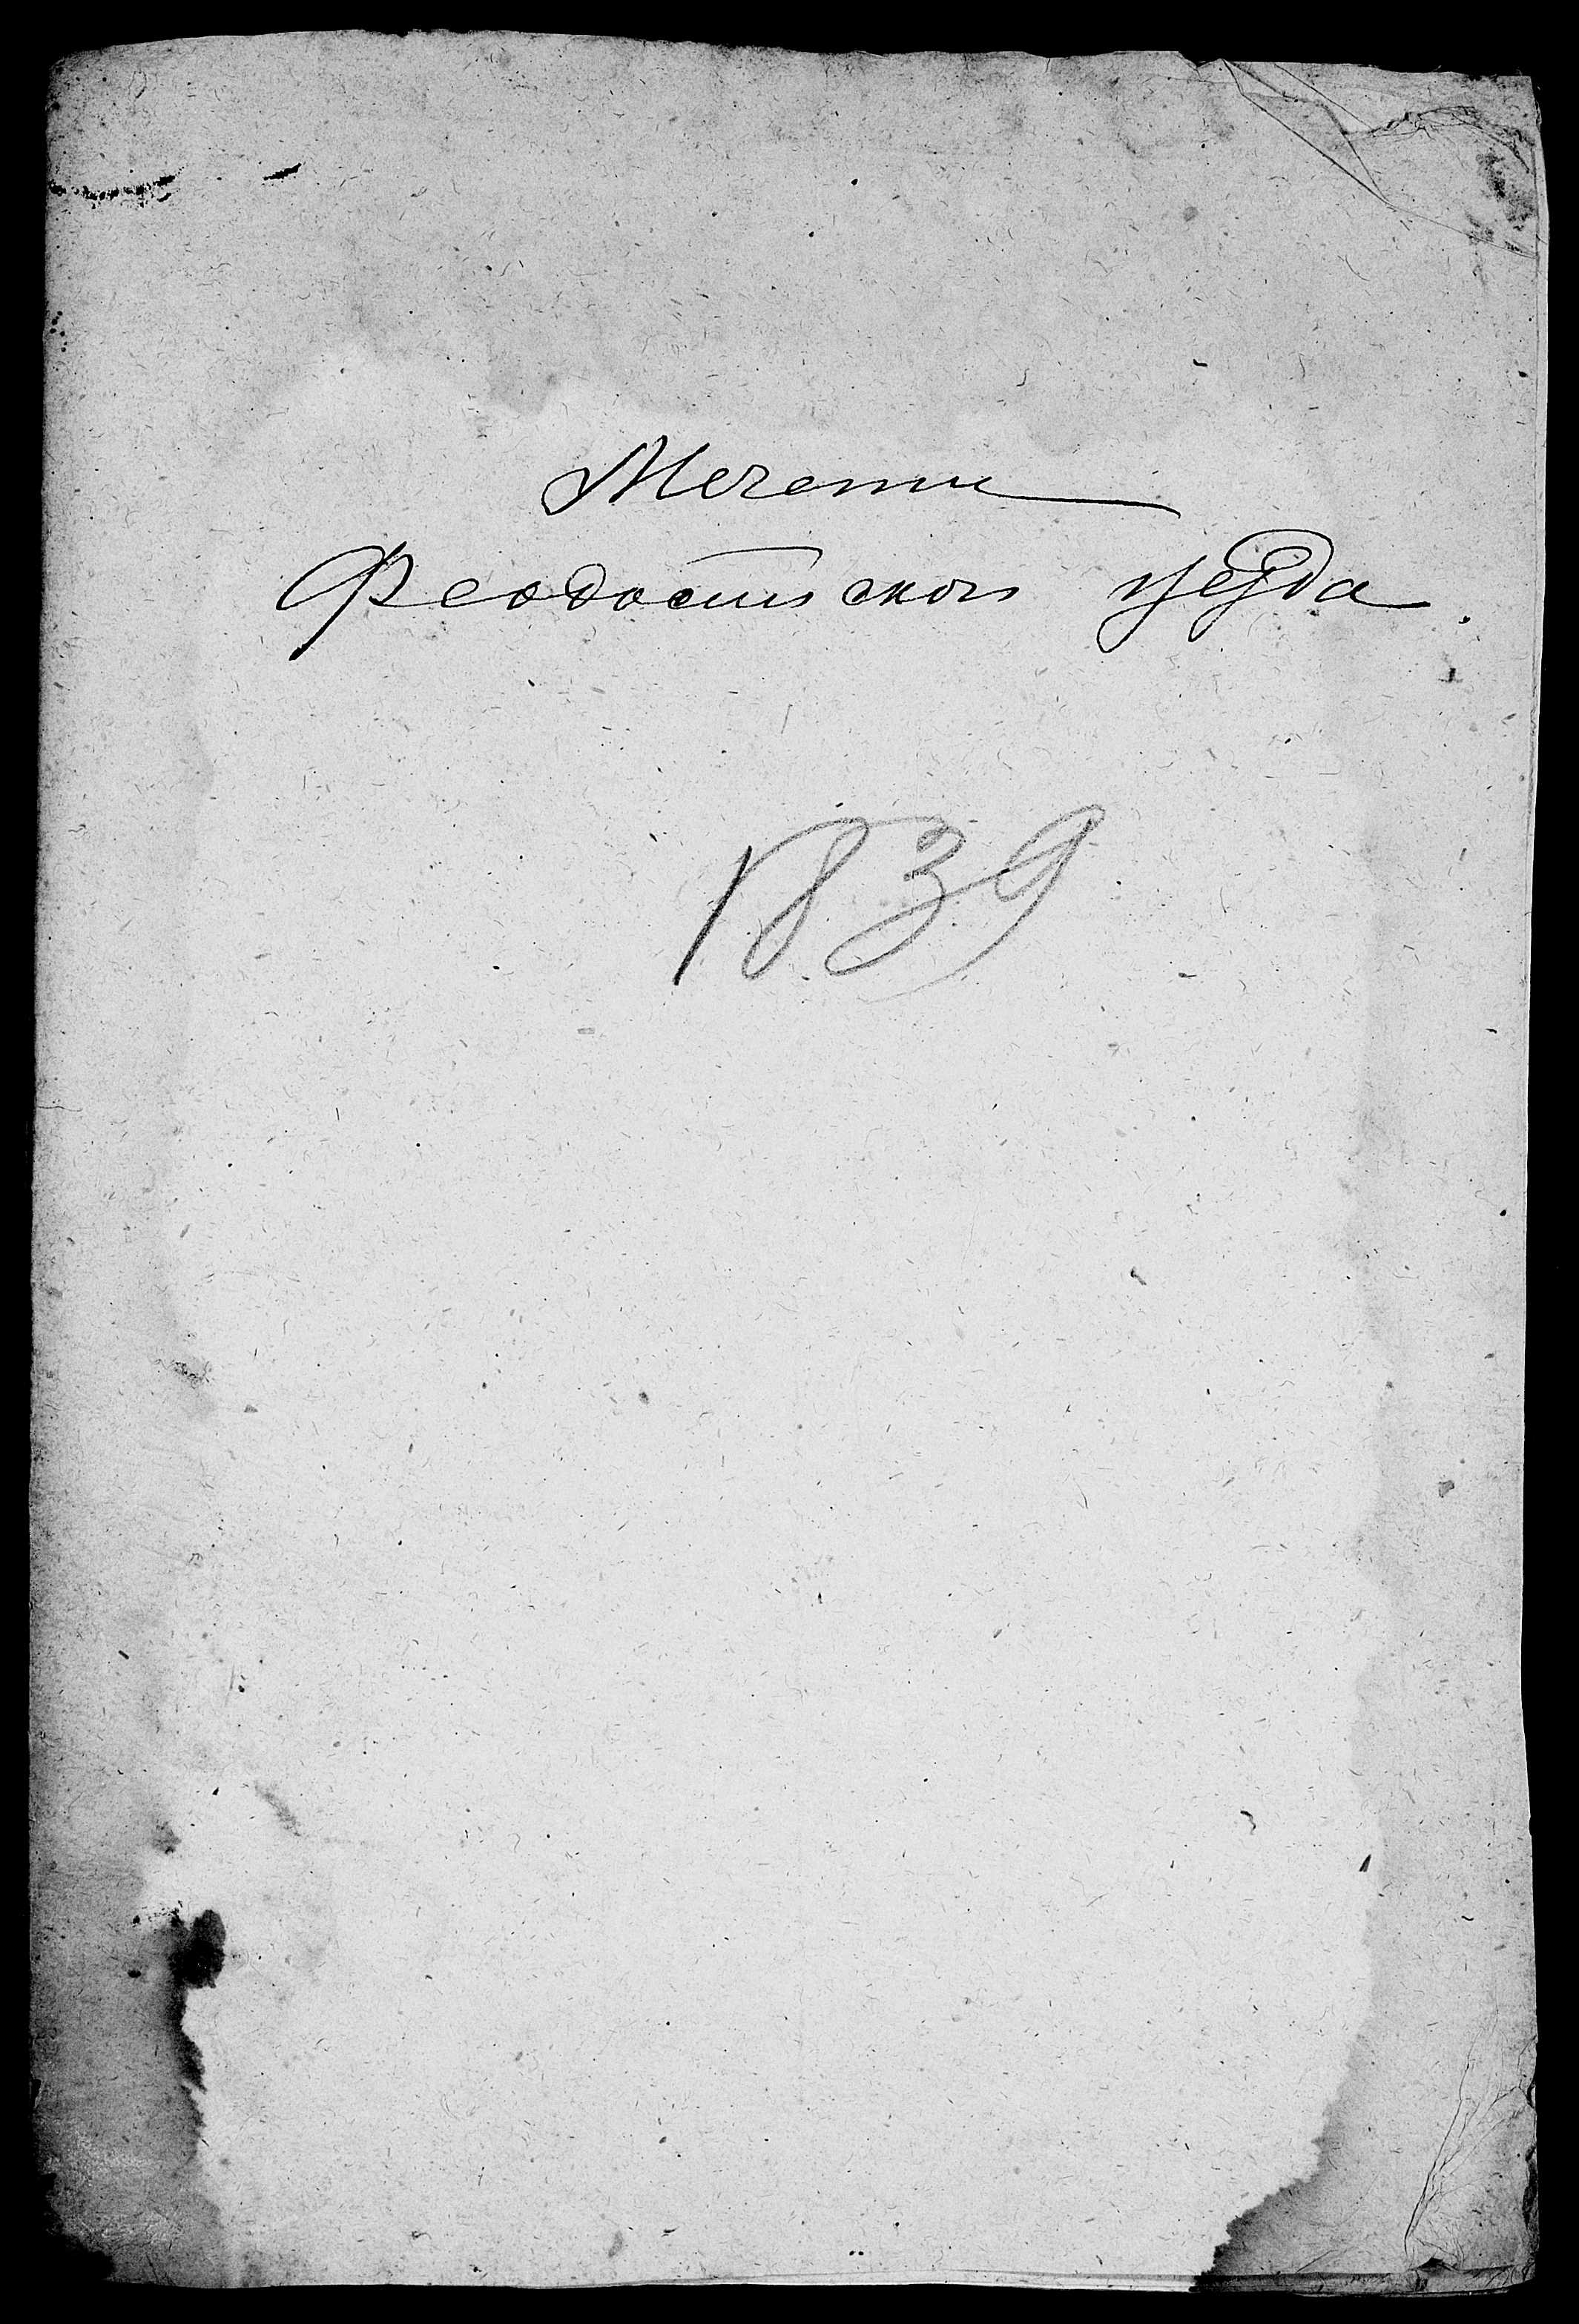 Мечети
Феодосійскаго уезда.
1839